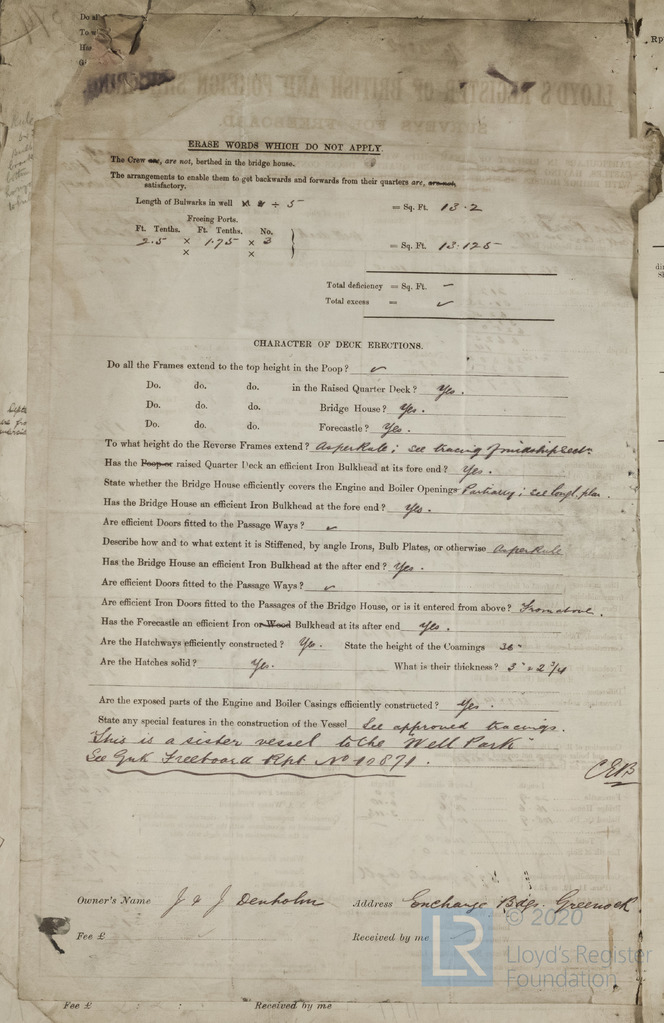 ERASE WORDS WHICH DO NOT APPLY.
The Crew are, are not, berthed in the bridge house.
The arrangements to enable them to get backwards and forwards from their quarters are, are not,
satisfactory.
Length of Bulwarks in well ÷ 5 = Sq. Ft. 13.2
Freeing Ports.
Ft. Tenths. Ft. Tenths. No.
2.5 × 1.75 × 3 = Sq. Ft. 13.125
× ×
Total deficiency = Sq. Ft. -
Total excess = ✓
CHARACTER OF DECK ERECTIONS.
Do all the Frames extend to the top height in the Poop? ✓
Do. do. do. in the Raised Quarter Deck? Yes.
Do. do. do. Bridge House? Yes.
Do. do. do. Forecastle? Yes.
To what height do the Reverse Frames extend? As per Rule; see tracing of midship sectn
Has the Poop or raised Quarter Deck an efficient Iron Bulkhead at its fore end? Yes.
State whether the Bridge House efficiently covers the Engine and Boiler Openings Partially; see longl. plan.
Has the Bridge House an efficient Iron Bulkhead at the fore end? Yes.
Are efficient Doors fitted to the Passage Ways? ✓
Describe how and to what extent it is Stiffened, by angle Irons, Bulb Plates, or otherwise As per Rule
Has the Bridge House an efficient Iron Bulkhead at the after end? Yes.
Are efficient Doors fitted to the Passage Ways? ✓
Are efficient Iron Doors fitted to the Passages of the Bridge House, or is it entered from above? From above.
Has the Forecastle an efficient Iron or Wood Bulkhead at its after end Yes.
Are the Hatchways efficiently constructed? Yes. State the height of the Coamings 36"
Are the Hatches solid? Yes. What is their thickness? 3" & 2 3/4
Are the exposed parts of the Engine and Boiler Casings efficiently constructed? Yes.
State any special features in the construction of the Vessel See approved tracings.
This is a sister vessel to the "Well Park"
See Gnk Freeboard Rpt No 10871.
CEB
Owner's Name J & J Denholm Address Exchange Bdgs. Greenock
Fee £ Received by me
© 2020
LR
Lloyd's Register
Foundation
Fee £ Received by me